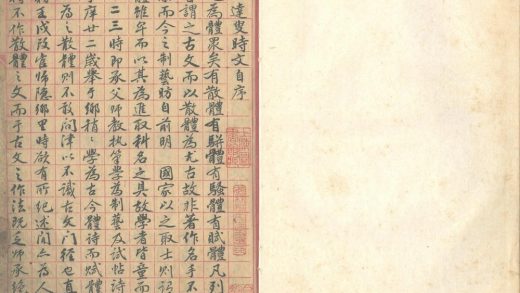 達叟時文自序
之為體眾矣有散體有駢體有騷體有賦體凡列
皆謂之古文而以散體為尤古故非著作名手不
而今之制藝昉自前明　國家以之取士則謂
體雖卑而以其為進取科名之具故學者皆童而
二三時即承父師教執筆學為制藝及試帖詩
庠廿二歲舉于鄉稍〻學為古今體詩而賦體
為之散體則不敢問津以不識古文門徑也直
壬戌改官歸隱鄉里時欲有所紀述間亦為人
得不作散體之文而于古文之作法既乏師承